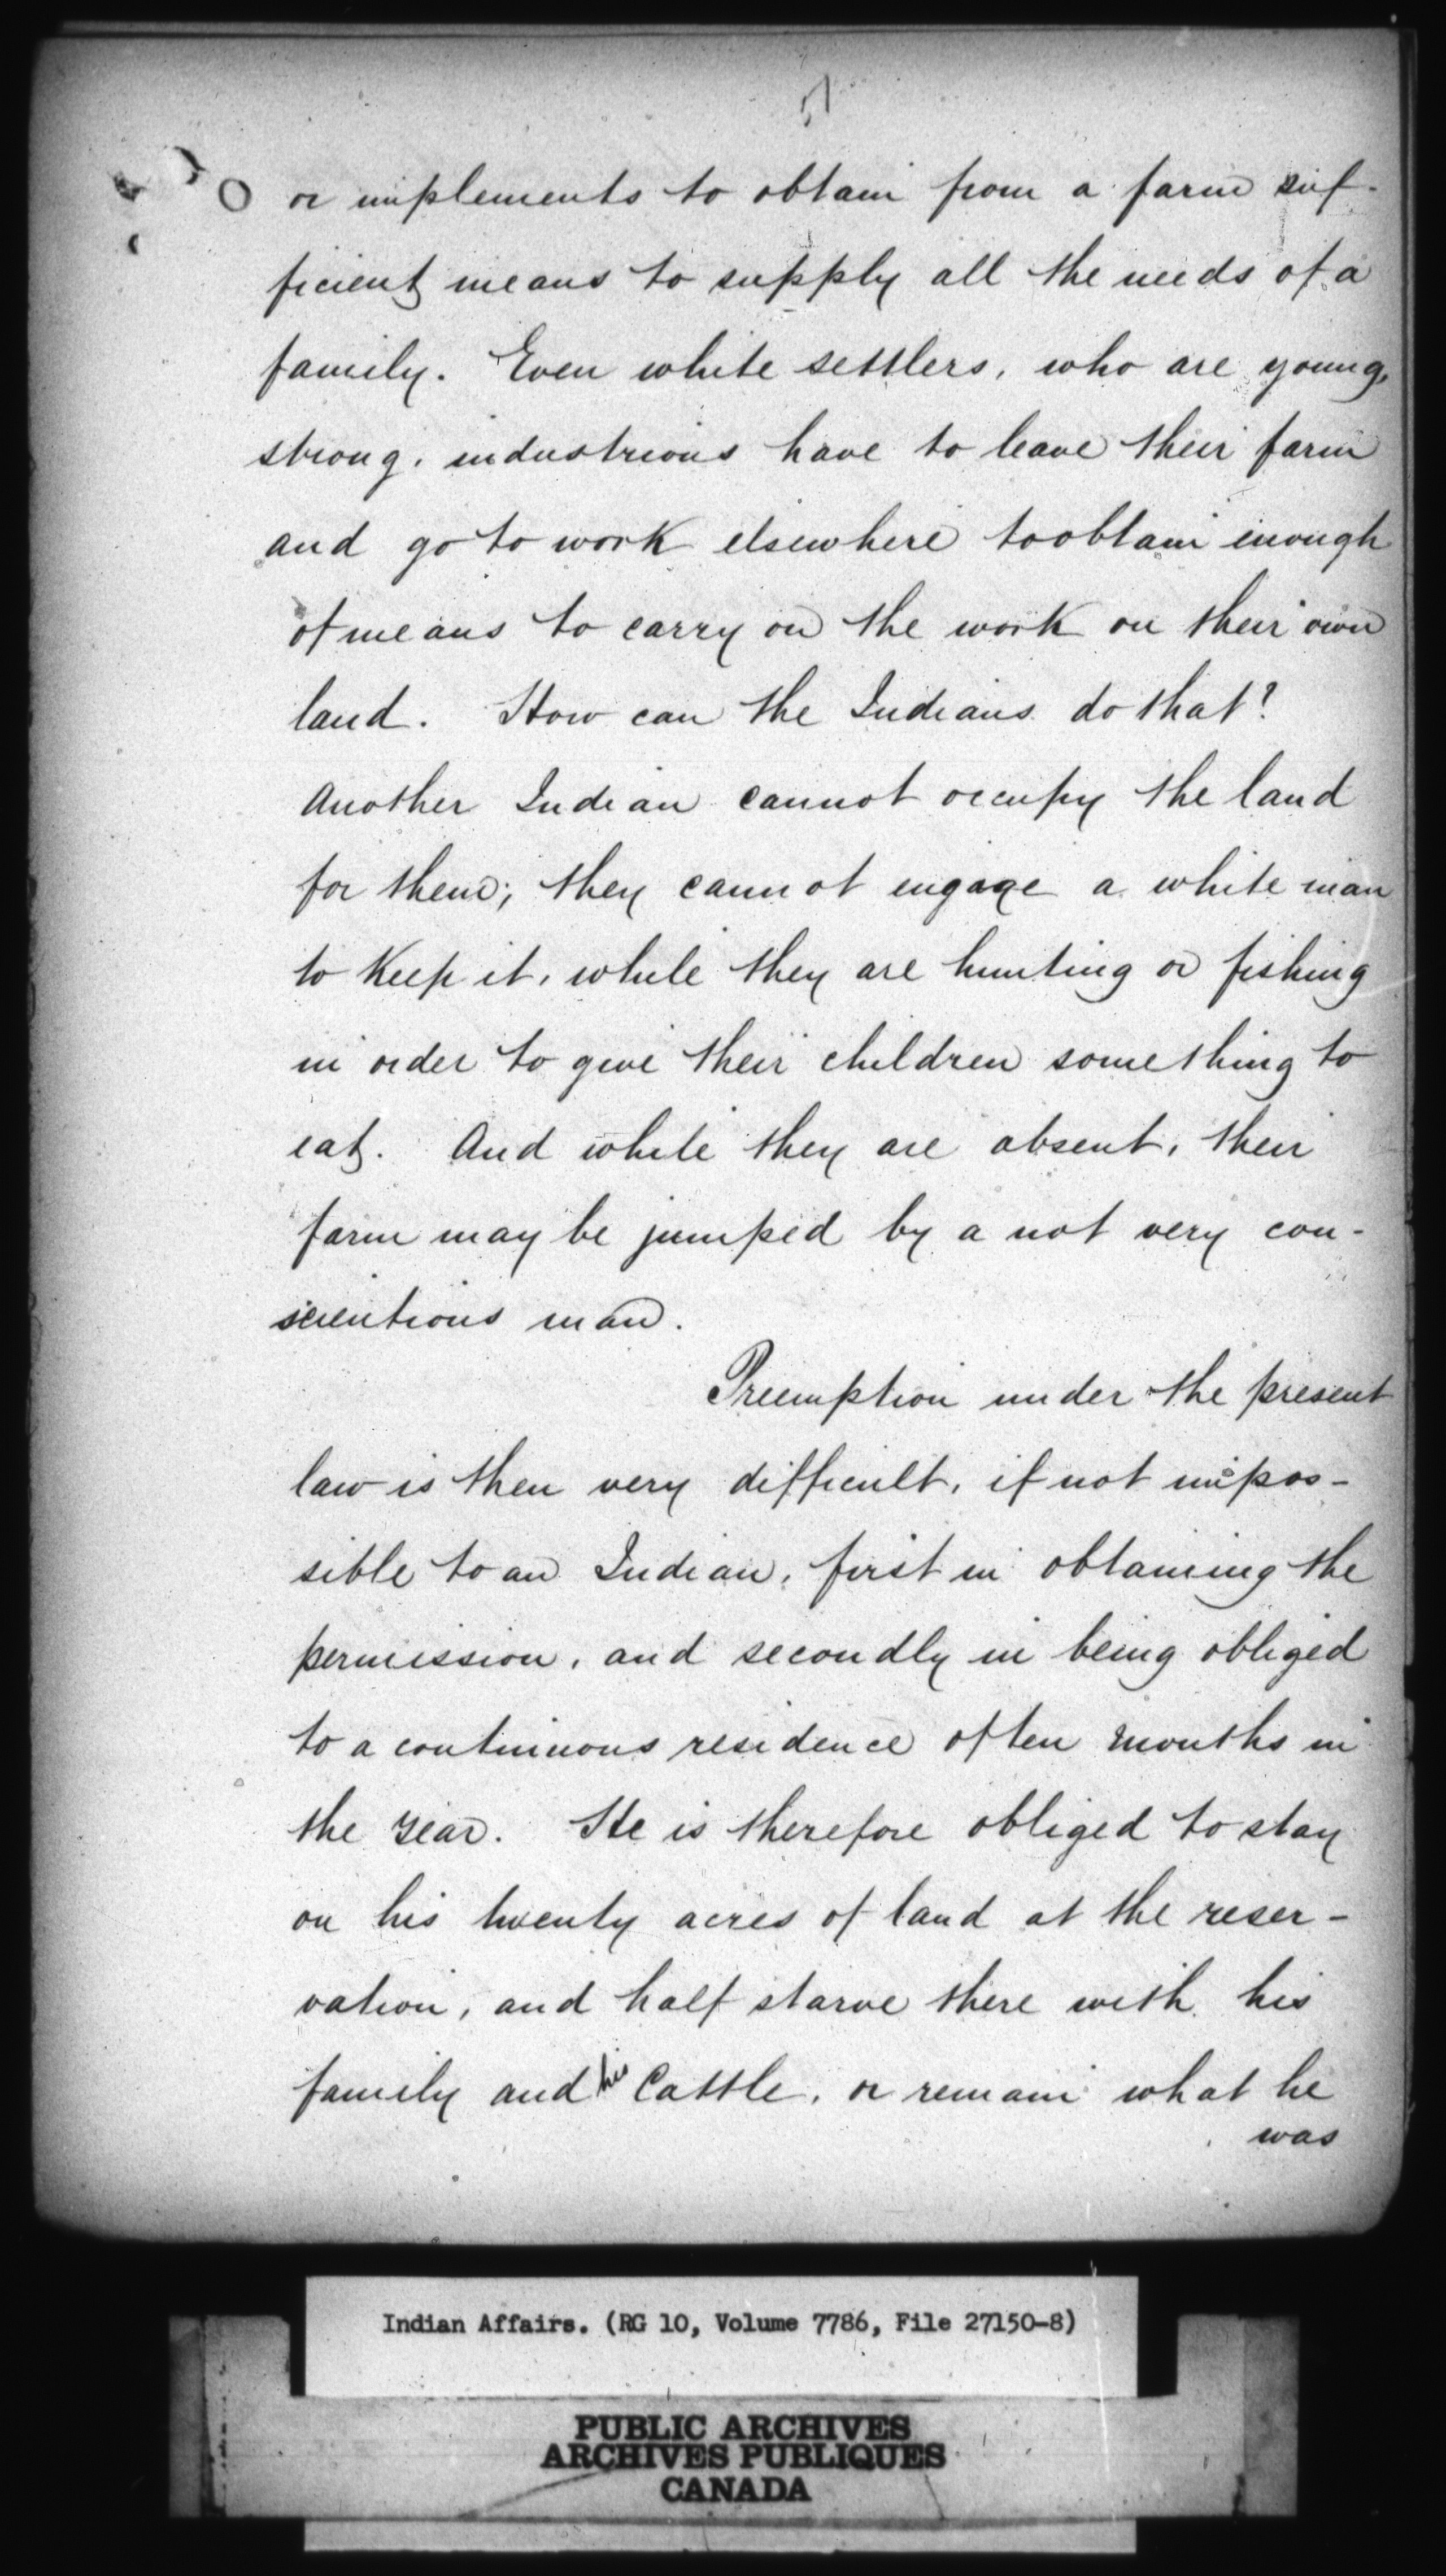 or implements to obtain from a farm suf-
ficient means to supply all the needs of a
family. Even white settlers, who are young,
strong, industrious have to leave their farm
and go to work elsewhere to obtain enough
of means to carry on the work on their own
land. How can the Indians do that?
Another Indian cannot occupy the land
for them; they cannot engage a white man
to keep it, while they are hunting or fishing
in order to give their children something to
eat. And while they are absent, their
farm may be jumped by a not very con-
scientious man.
Preemption under the present
law is then very difficult, if not impos-
sible to an Indian, first in obtaining the
permission, and secondly in being obliged
to a continuous residence of ten months in
the year. He is therefore obliged to stay
on his twenty acres of land at the reser-
vation, and half starve there with his
family and his Cattle, or remain what he
was
Indian Affairs. (RG 10, Volume 7786, File 27150-8)
PUBLIC ARCHIVES
ARCHIVES PUBLIQUES
CANADA